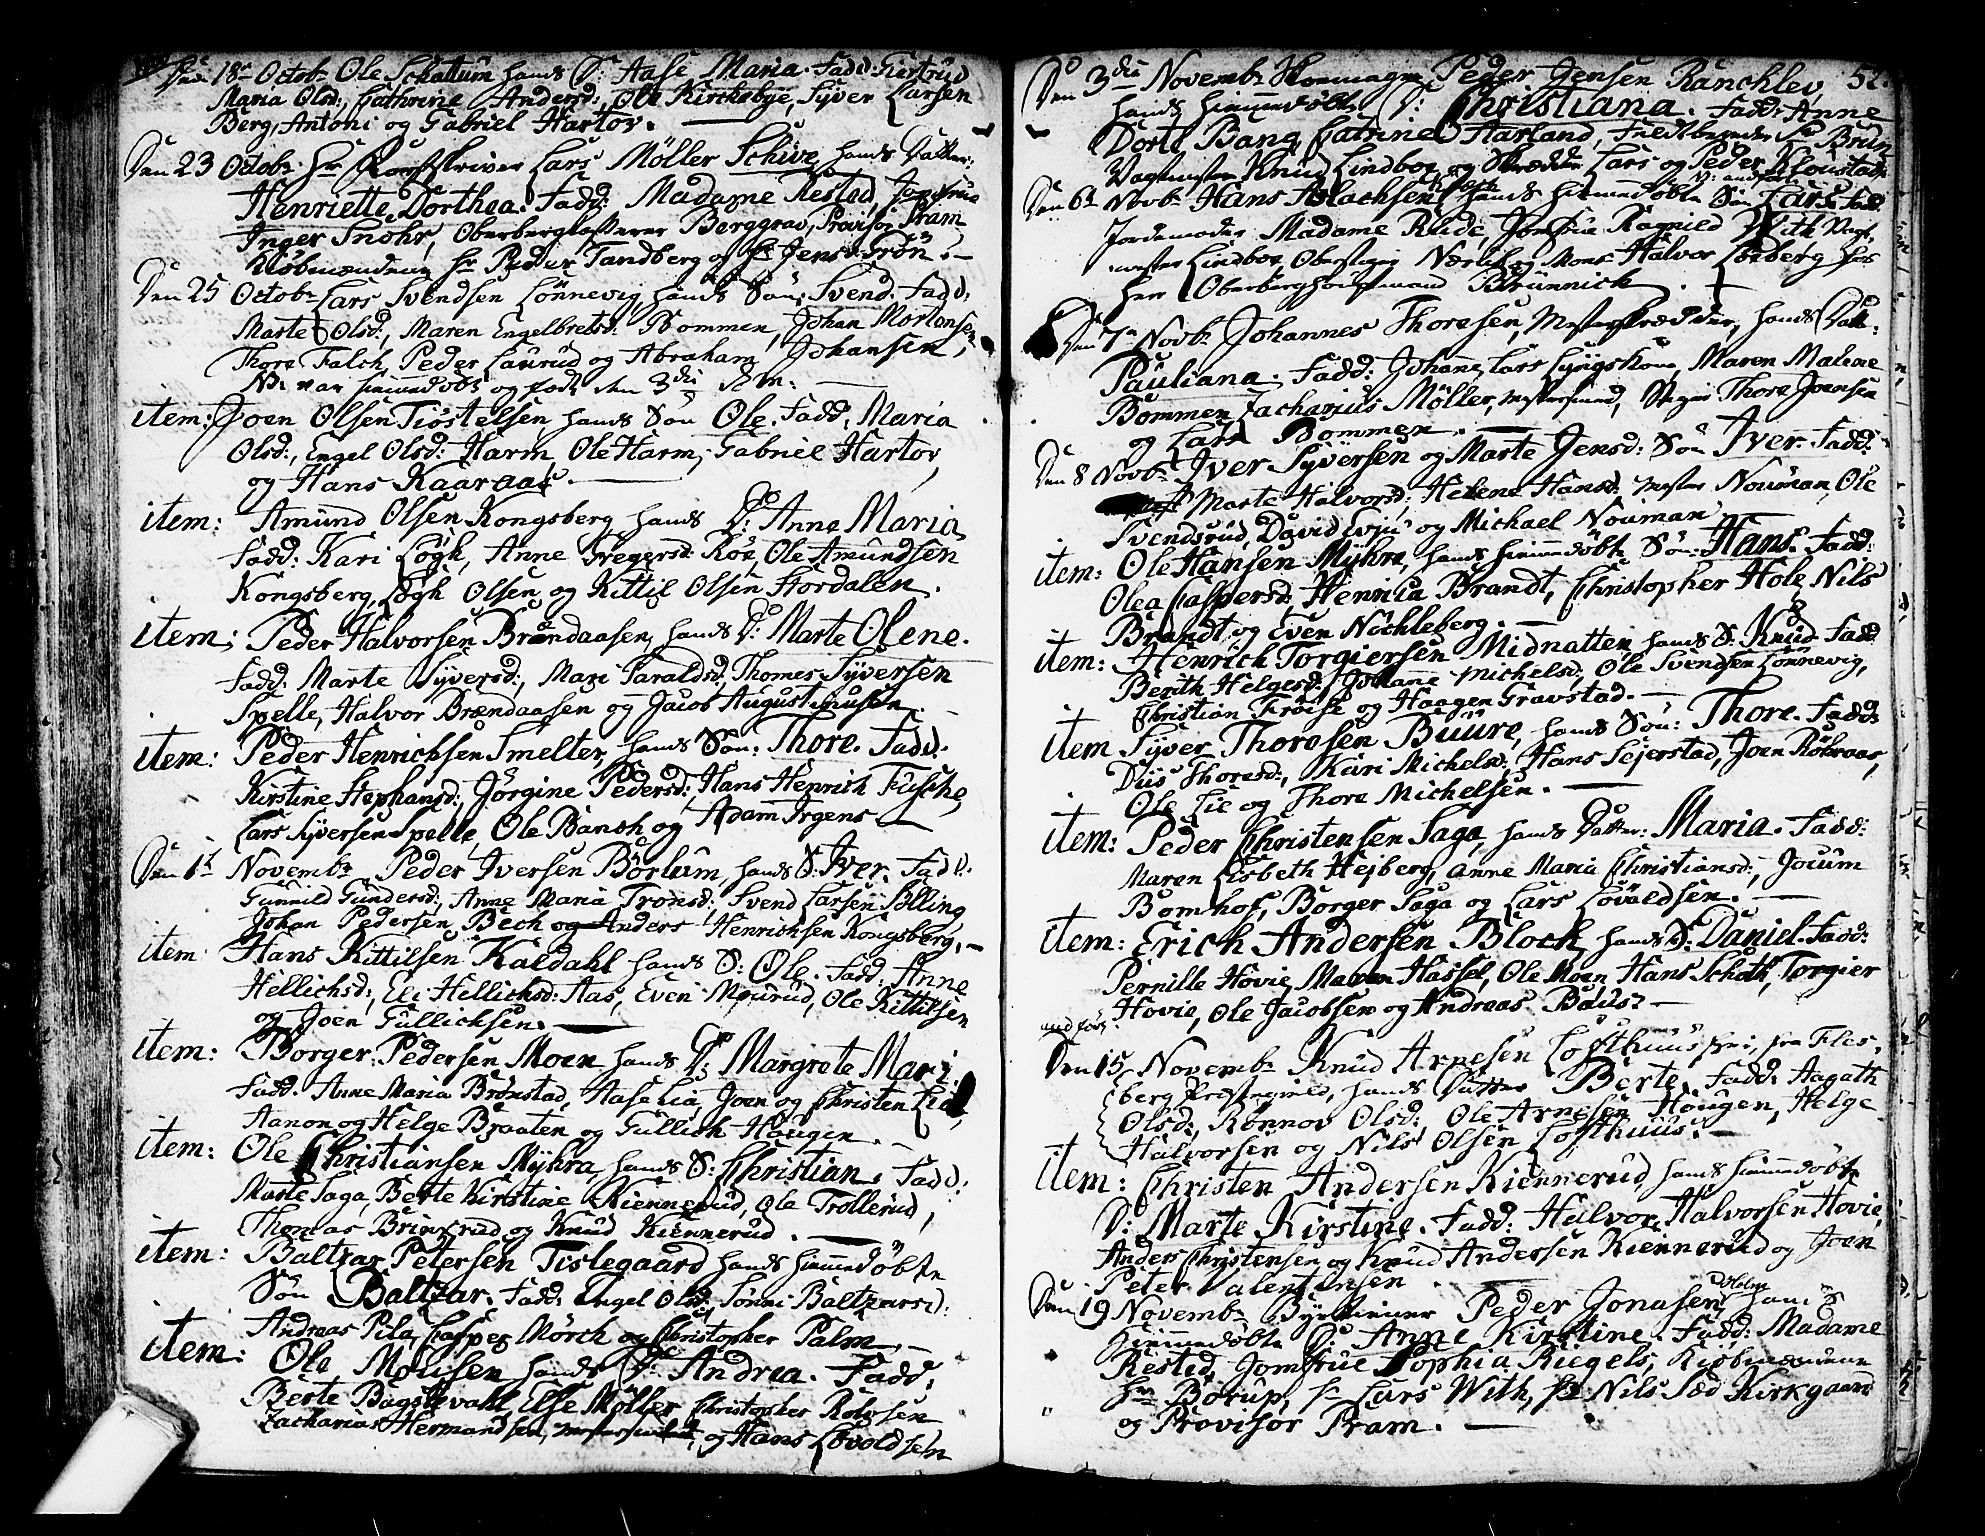 Den 18de Octobr Ole Schattum hans D: Aase Maria. Fadd: Giertrud
Maria Olsd:, Cathrine Andersd:, Ole Kirchebye, Syver Larsen
Berg, Antoni og Gabriel Hartov.
Den 23 Octobr. Hr Lars Möller Schive, hans Datter:
Henriette Dorthea. Fadd: Madame Rested, Jomfrue
Inger Snohr, Berggrav, Provisor Pram
Kiöbmændene Hr Peder Tandberg og Hr Jens Grön.
Den 25 Octobr Lars Svendsen Lönnevig, hans Sön: Svend. Fadd:
Marte Olsd:, Maren Engelbretsd: Bommen, Johan Mortensen
Thore Falch, Peder Laurud og Abraham Johansen,
NB: var hiemmedöbt og födt den 3die dm:
item: Joen Olsen Tiöstelsen hans Sön Ole. Fadd: Maria
Olsd:, Engel Olsd: Harm, Ole Harm, Gabriel Hartov,
og Hans Kaaraas.
item: Amund Olsen Kongsberg hans D: Anne Maria
Fadd: Kari Lögh, Anne Gregersd: Roe, Ole Amundsen
Kongsberg, Lögh Olsen og Kittil Olsen Hordalen.
item: Peder Halvorsen Brændaasen, hans D: Marte Olene.
Fadd: Marte Syversd:, Mari Haraldsd:, Thomes Syversen
Spelle, Halvor Brændaasen og Jacob Augustinusen.
item: Peder Henrichsen Smelter, hans Sön: Thore. Fadd:
Kirstine Stephansd:, Jörgine Pedersd:, Hans Henrich Fusche,
Lars Syversen Spelle, Ole Bansh og Adam Irgens
Den 1st Novembr Peder Iversen Börlum, hans S: Iver. Fadd:
Gunnild Gundersd:, Anne Maria Tronsd:, Svend Larsen Sölling,
Johan Pedersen Bech og Anders Henrichsen Kongsberg.
item Hans Kittilsen Kaldahl hans S: Ole. Fadd: Anne
Hellichsd:, Eli Hellichsd: Aas, Even Mourud, Ole Kittilsen
og Joen Gullichsen.
item: Borger Pedersen Moen hans D: Margrete Mari.
Fadd. Anne Maria Brönstad, Aase Lia, Joen og Christen Lia,
Aanon og Helge Braaten og Gullich Haugen.
item: Ole Christiansen Myhra, hans S: Christian. Fadd:
Marte Saga, Berte Kirstine Kiennerud, Ole Trollerud,
Thomas Brinkrud og Knud Kiennerud.
item: Baltzar Petersen Tislegaard hans hiemmedöbte
Sön Baltzar. Fadd: Engel Olsd:, Sönni Baltzarsd:
Andreas Pila, Casper Mörch og Christopher Palm.
item: Ole Mouisen hans D: Andrea. Fadd:
Berte Bagstevahl, Else Möller, Christopher Rolvsen
Zacharias Hermandsen, Mestersvend, og Hans Lövoldsen
52.
Den 3die Novembr Peder Jensen Ranchlev,
hans hiemmedöbte D: Christiana. Fadd: Anne
Dortl Bang, Catrine Aarland, Sr Brun
Vagtmester Knud Lindboe, og Skræder Lars og Peder Kloustad
Den 6te Novbr Hans Aslachsen hans hiemmedöbte Sön Lars. Fadd
Jordemoder Madame Rude, Jomfrue Ragnild With, Vagt-
mester Lindboe, Oberstiger Næreh og Mons: Halvor Loeberg hos
Herr Oberberghovetmand Brünnich.
Den 7de Novbr Johannes Thoresen, Mesterskrædder, hans Datt:
Pauliana. Fadd: Johane Lars Lyngskone, Maren Malene
Bommen, Zacharius Möller, Mestersvend, Stiger Thore Joensen
og Lars Bommen.
Den 8 Novbr Iver Syversen og Marte Jensd: Sön Iver. Fadd:
Marte Halvorsd:, Helene Hansd:, Mester Nouman, Ole
Svendsrud, David Evju og Michael Nouman
item: Ole Hansen Myhre, hans hiemmedöbte Sön: Hans. Fadd:
Olea Caspersd:, Henrica Brandt, Christopher Hole, Nils
Brandt og Even Nichleberg.
item: Henrich Torgiersen Midnatten hans S: Knud. Fadd
Berith Helgesd:, Johane Michelsd:, Ole Svendsen Lönnevig,
Christian Fröise og Haagen Gravstad.
item Syver Thoresen Buure, hans Sön: Thore. Fadd:
Duis Thoresd:, Kari Michelsd:, Hans Sejerstad, Joen Röbraas,
Ole Lie og Thore Michelsen.
item: Peder Christensen Saga, hans Datter: Maria. Fadd:
Maren Lisbeth Hejberg, Anne Maria Christiansd:, Jocum
Bomhof, Borger Saga og Lars Lövoldsen.
item: Erich Andersen Bloch, hans S: Daniel. Fadd:
Pernille Hovie, Maren Hassel, Ole Moen, Hans Schoth, Torgier
Hovie, Ole Jacobsen og Andreas Baus.
Den 15 Novembr Knud Arnesen Lofthuus fra Fles-
berg Præstegield, hans Datter Berte. Fadd: Aagath
Olsd:, Rönnov Olsd:, Ole Arnesen Hougen, Helge
Halvorsen og Nils Olsen Lofthuus.
item: Christen Andersen Kiennerud, hans hiemmedöbte
D: Marte Kirstine. Fadd: Halvor Halvorsen Hovie,
Anders Christensen og Knud Andersen Kiennerud og Joen
Peter Valentinsen.
Den 19 Novembr Peder Jonasen Holm hans
hiemmedöbte D: Anne Kirstine. Fadd: Madame
Rested, Jomfrue Sophia Riegels, Kiöbmændene
Hr Borup, Hr Lars With, Hr Nils Sæd Kirkgaard
og Provisor Pram.